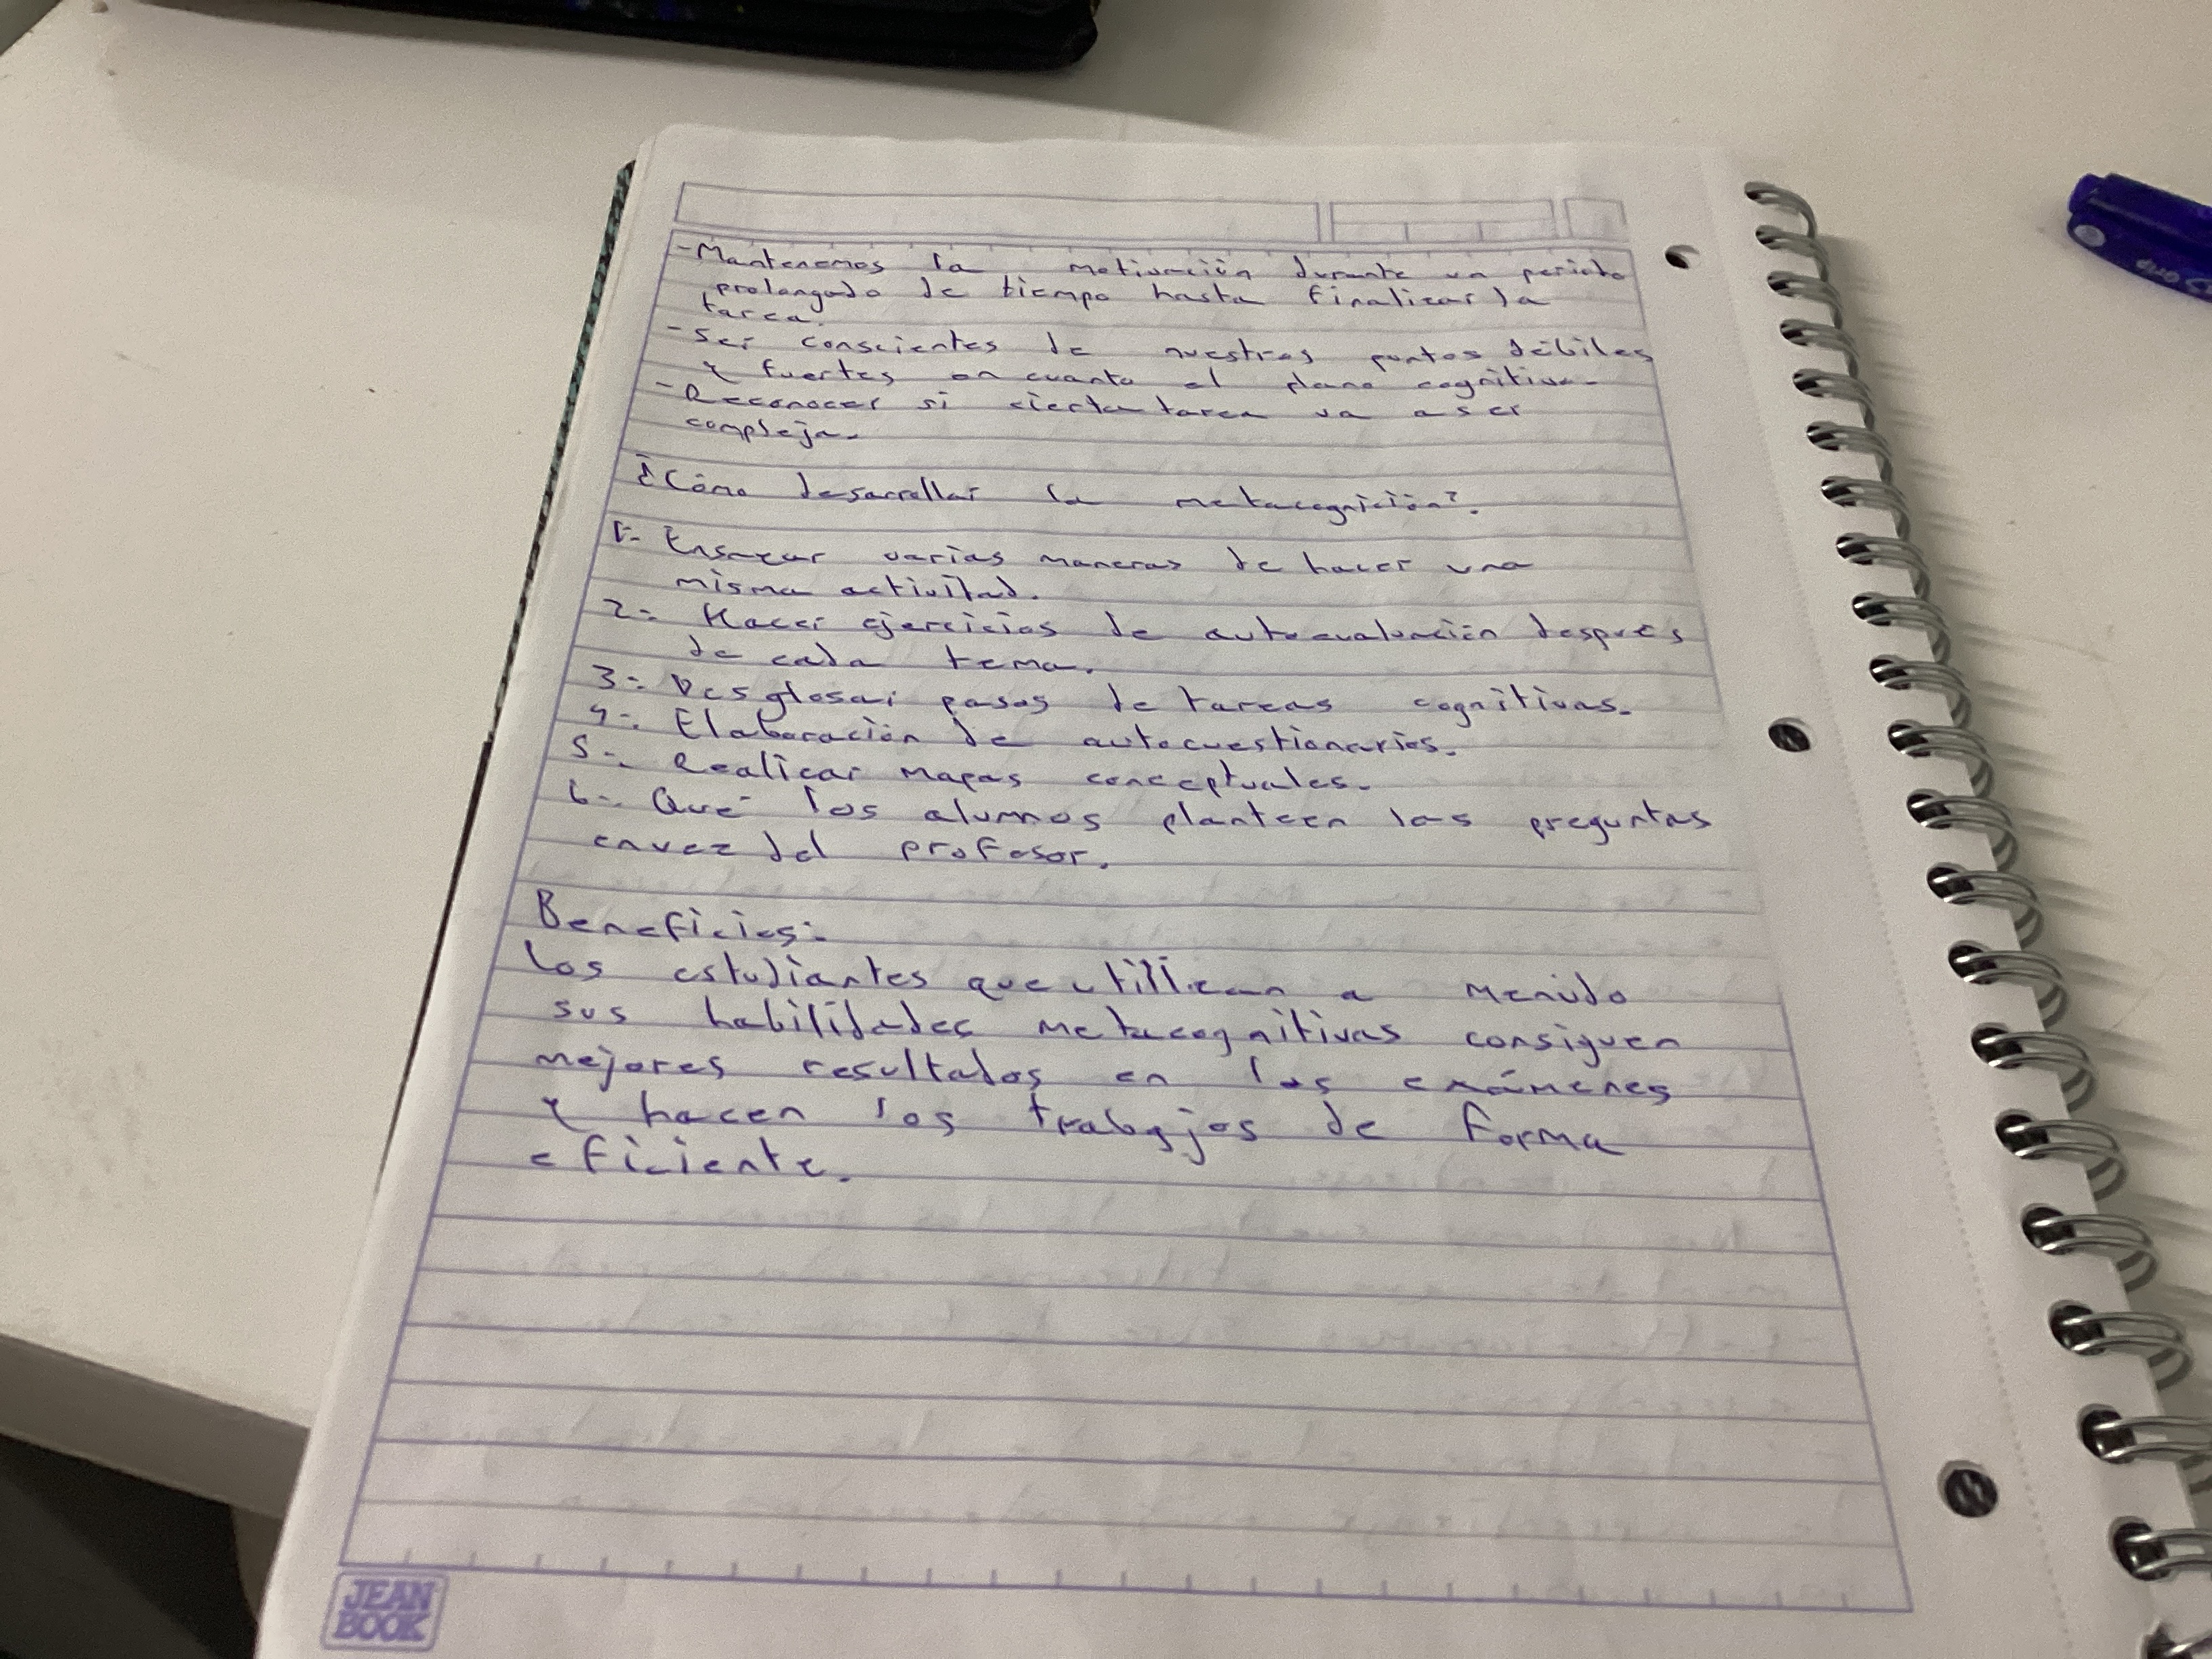 - Mantenemos la motivación durante un periodo
prolongado de tiempo hasta finalizar la
tarea.
- Ser conscientes de nuestros puntos débiles
y fuertes en cuanto al plano cognitivo.
- Reconocer si cierta tarea va a ser
compleja.
¿Cómo desarrollar la metacognición?.
1- Ensayar varias maneras de hacer una
misma actividad.
2- Hacer ejercicios de autoevaluación después
de cada tema.
3- Desglosar pasos de tareas cognitivas.
4- Elaboración de autocuestionarios.
5- Realizar mapas conceptuales.
6- Qué los alumnos planteen las preguntas
envez del profesor.
Beneficios:
Los estudiantes que utilizan a menudo
sus habilidades metacognitivas consiguen
mejores resultados en los exámenes
y hacen los trabajos de forma
eficiente.
JEAN
BOOK